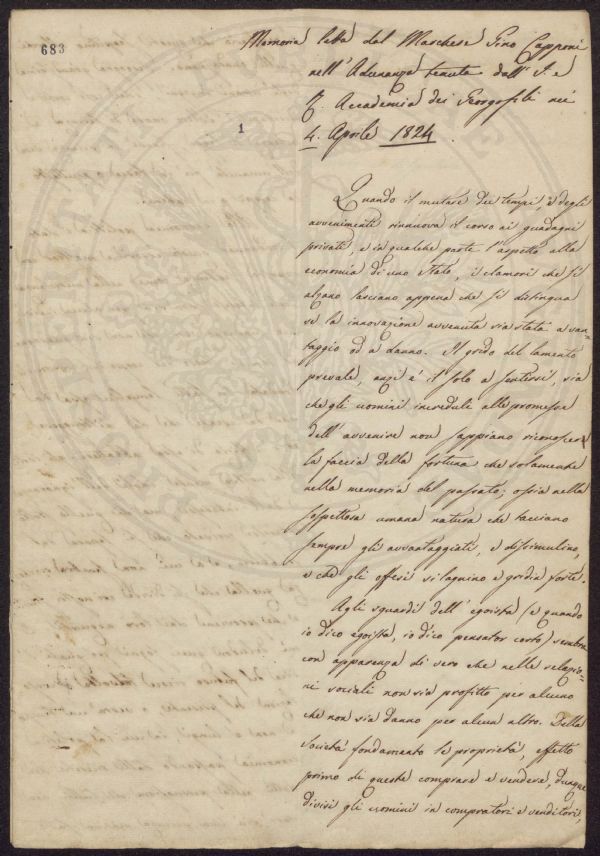 683
Memoria letta dal Marchese Gino Capponi
nell'Adunanza tenuta dall'I. e
R. Accademia dei Georgofili nei
4. Aprile 1824.
1
Quando il mutare dei tempi, e degli
avvenimenti rinnuova il corso ai guadagni
privati, e in qualche parte l'aspetto alla
economia di uno Stato, i clamori che si
alzano lasciano appena che si distingua
se la innovazione avvenuta sia stata a van-
taggio od a danno. Il grido del lamento
prevale, anzi è il solo a sentirsi, sia
che gli uomini increduli alle promesse
dell'avvenire non sappiano riconoscere
la faccia della fortuna che solamente
nella memoria del passato; ossia nella
sospettosa umana natura che tacciano
sempre gli avvantaggiati, e dissimulino,
e che gli offesi si lagnino e gridin forte.
Agli sguardi dell'egoista (e quando
io dico egoista, io dico pensator corto) sembra
con apparenza di vero che nelle relazio-
ni sociali non sia profitto per alcuno
che non sia danno per alcun altro. Della
Società fondamento le proprietà, effetto
primo di queste comprare e vendere, dunque
divisi gli uomini in compratori e venditori,
PROSPERITATI PUBLICAE